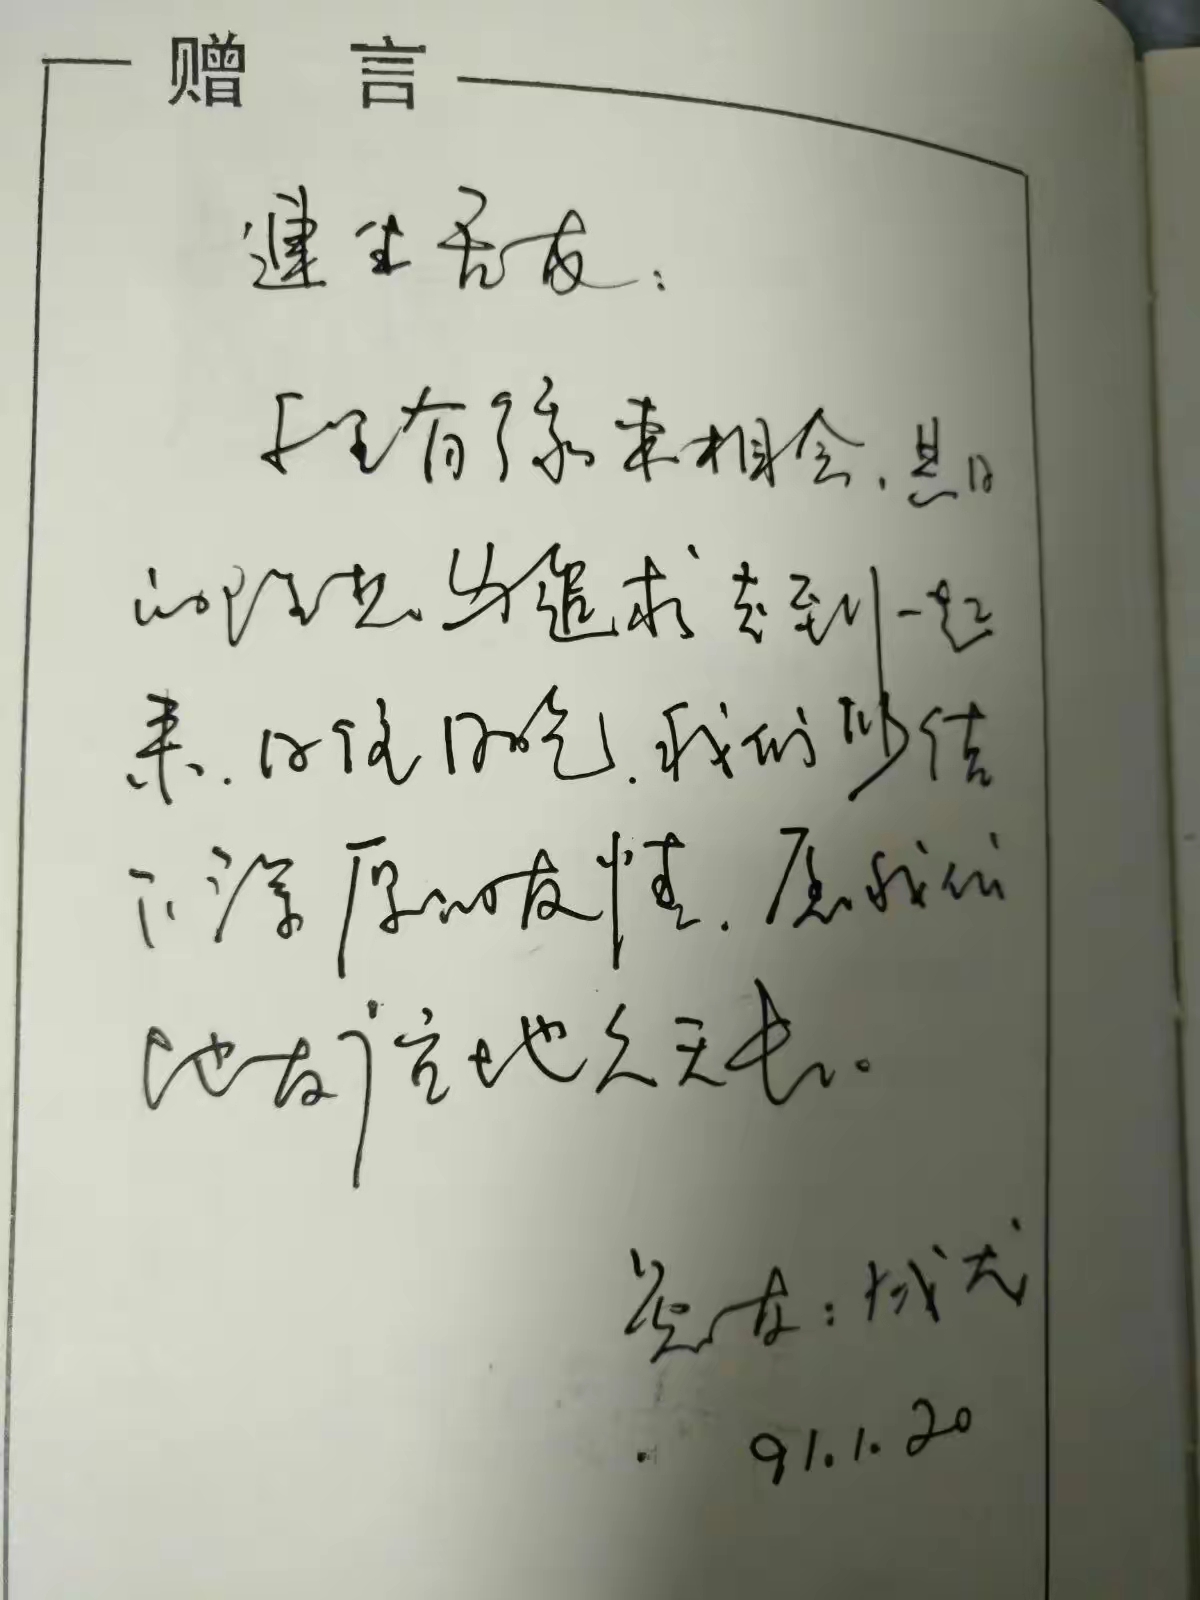 赠言
莲生吾友：
千里有缘来相会，共同
的理想与追求走到一起
来，同住同吃，我们结
下深厚的友情，愿我们
的友谊地久天长。
学友：成龙
91.1.20